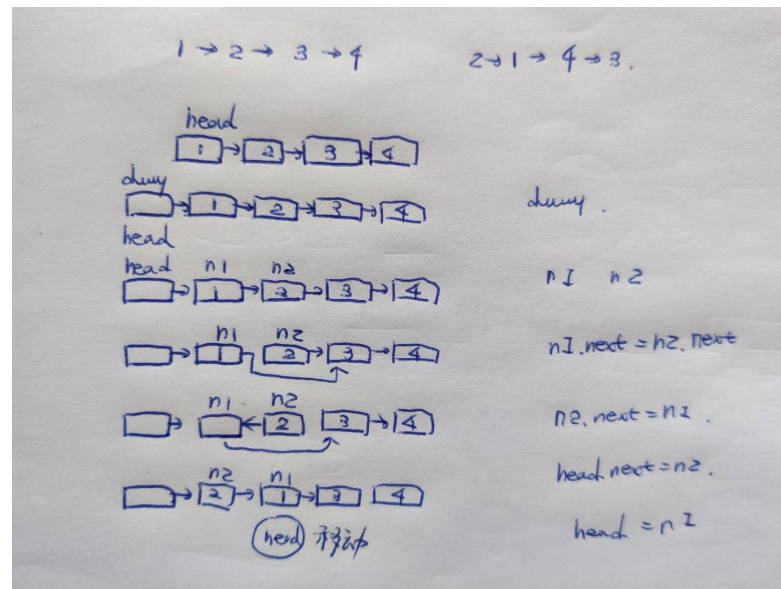 1 → 2 → 3 → 4 2 → 1 → 4 → 3.
head
1 → 2 → 3 → 4
dumy
→ 1 → 2 → 3 → 4 dumy.
head
head n1 n2
→ 1 → 2 → 3 → 4 n1 n2
n1 n2
→ 1 2 → 3 → 4 n1.next = n2.next
n1 n2
→ ← 2 3 → 4 n2.next = n1.
n2 n1 head.next = n2.
→ 2 → 1 → 3 4
head 移动 head = n1